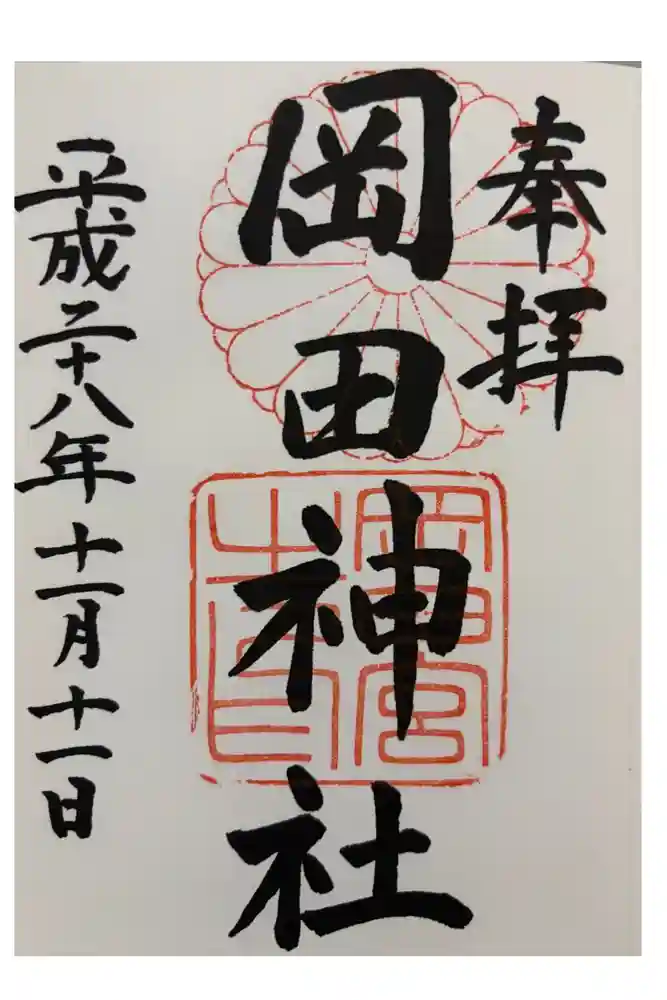 奉拝
岡田神社
岡田宮
平成二十八年十一月十一日